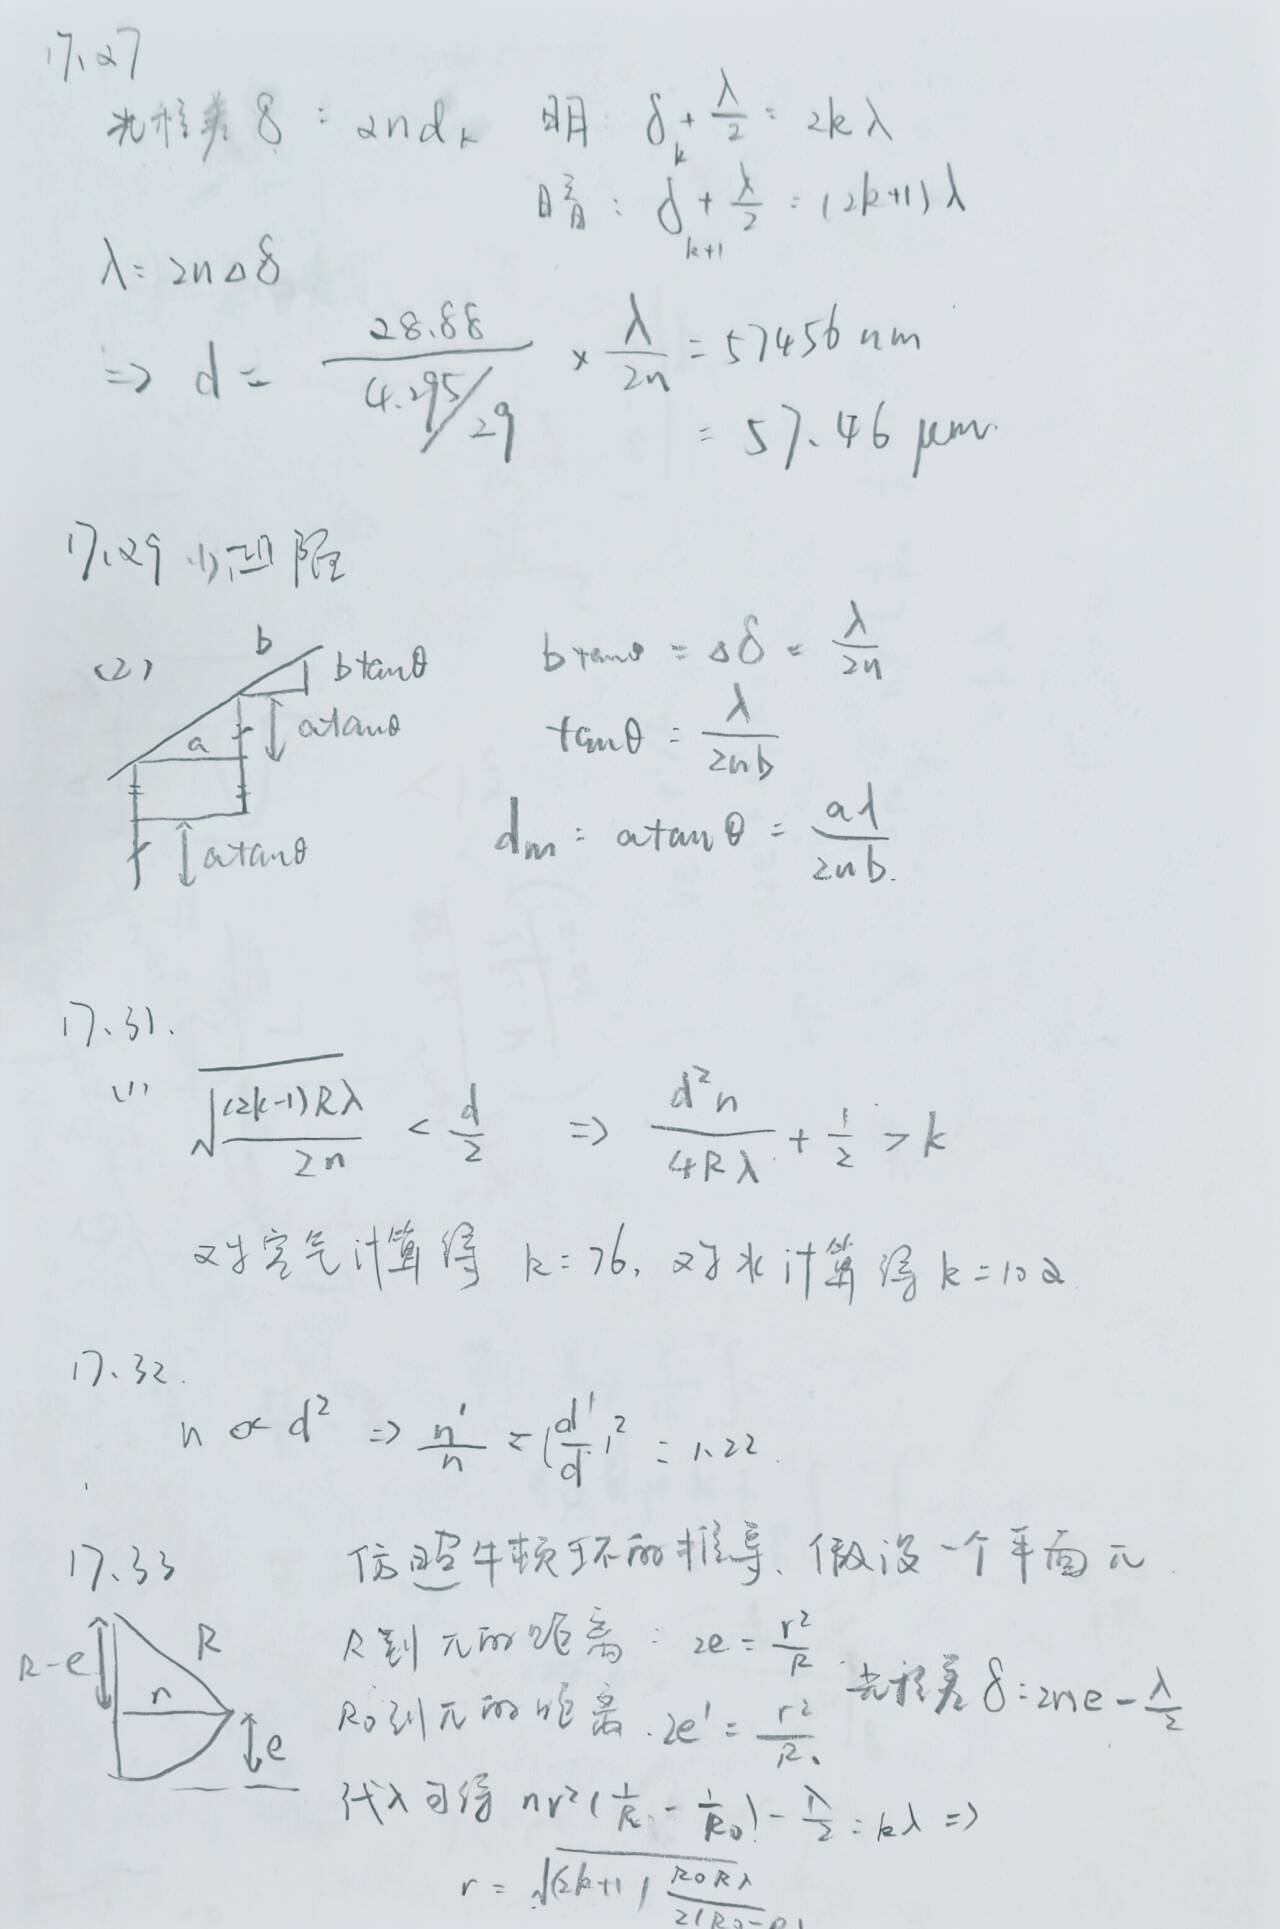 17.27
光程差 δ = 2nd_k 明: δ_k + λ/2 = 2kλ
暗: δ_{k+1} + λ/2 = (2k+1)λ
λ = 2nΔδ
⇒ d = 28.88/(4.295/29) × λ/2n = 57456 nm
= 57.46 μm.
17.29 (1) 凹陷
(2) b btanθ atanθ a atanθ
btanθ = Δδ = λ/2n
tanθ = λ/2nb
d_m = atanθ = aλ/2nb.
17.31.
(1) √((2k-1)Rλ/2n) < d/2 ⇒ d²n/4Rλ + 1/2 > k
对空气计算得 k=76, 对水计算得 k=102
17.32.
n ∝ d² ⇒ n'/n = (d'/d)² = 1.22.
17.33 仿照牛顿环的推导、假设一个平面π
R-e R r e
R到π的距离: 2e = r²/R
R₀到π的距离. 2e' = r²/R₀
光程差 δ = 2ne - λ/2
代入可得 nr²(1/R - 1/R₀) - λ/2 = kλ ⇒
r = √((2k+1) R₀Rλ/2(R₀-R))